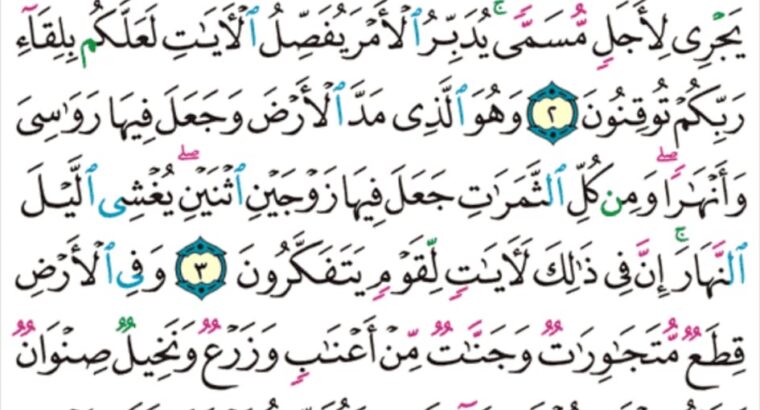 يَجْرِى لِأَجَلٍ مُّسَمًّى ۚ يُدَبِّرُ ٱلْأَمْرَ يُفَصِّلُ ٱلْأٓيَـٰتِ لَعَلَّكُم بِلِقَآءِ
رَبِّكُمْ تُوقِنُونَ ٢ وَهُوَ ٱلَّذِى مَدَّ ٱلْأَرْضَ وَجَعَلَ فِيهَا رَوَٰسِىَ
وَأَنْهَـٰرًا ۖ وَمِن كُلِّ ٱلثَّمَرَٰتِ جَعَلَ فِيهَا زَوْجَيْنِ ٱثْنَيْنِ ۖ يُغْشِى ٱلَّيْلَ
ٱلنَّهَارَ ۚ إِنَّ فِى ذَٰلِكَ لَأٓيَـٰتٍ لِّقَوْمٍ يَتَفَكَّرُونَ ٣ وَفِى ٱلْأَرْضِ
قِطَعٌ مُّتَجَـٰوِرَٰتٌ وَجَنَّـٰتٌ مِّنْ أَعْنَـٰبٍ وَزَرْعٌ وَنَخِيلٌ صِنْوَانٌ